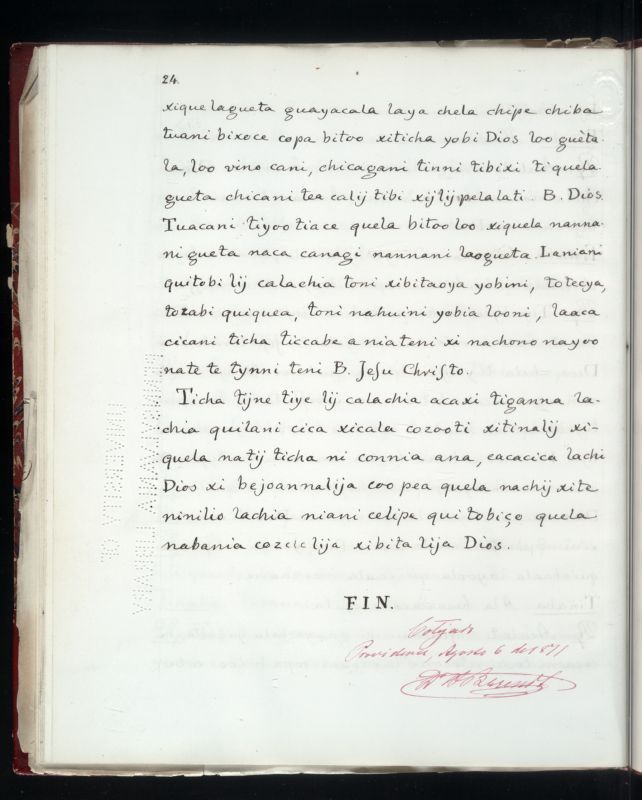 24.
xique lagueta guayacala laya chela chipe chiba
tuani bixoce copa bitoo xiticha yobi Dios loo guèta.
la, loo vino cani, chicagani tinni tibixi tiquela.
gueta chicani tea calij tibi xijlijpelalati. B. Dios.
Tuacani tiyoo tiace quela bitoo loo xiquela nanna-
ni gueta naca canagi nannani laogueta. Laniani
quitobi lij calachia toni xibitaoya yobini, totecya,
tozabi quiquea, toni nahuini yobia looni, laaca
cicani ticha ticcabe a niateni xi nachono nayoo
nate te tynni teni B. Jesu Christo.
Ticha tijne tiye lij calachia acaxi tiganna la-
chia quilani cica xicala cozooti xitinalij xi-
quela natij ticha ni connia ana, cacacica lachi
Dios xi bejoannalija coo pea quela nachij xite
ninilio lachia niani celipe qui tobiço quela
nabania cozcic lija xibita lija Dios.
FIN.
Cotejado
Providence, Agosto 6 de 1871